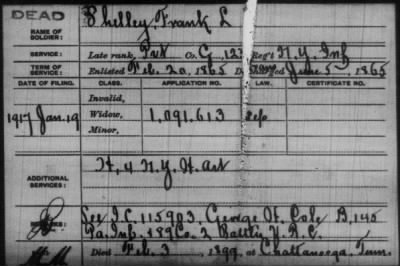 DEAD
NAME OF SOLDIER: Shelley, Frank L
SERVICE: Late rank, Pvt Co. G, 123 Reg't N.Y. Inf
TERM OF SERVICE: Enlisted Feb. 20, 1865 June 5, 1865
DATE OF FILING. CLASS. APPLICATION NO. LAW. CERTIFICATE NO.
Invalid,
1917 Jan. 19 Widow, 1,091,613
Minor,
ADDITIONAL SERVICES: H, 4 N.Y. H. Art
See I.C. 115903, George H. Cole B, 145
REMARKS: Pa. Inf. 189 Co. 2 Battln V.R.C.
Died Feb. 3, 1899, at Chattanooga, Tenn.